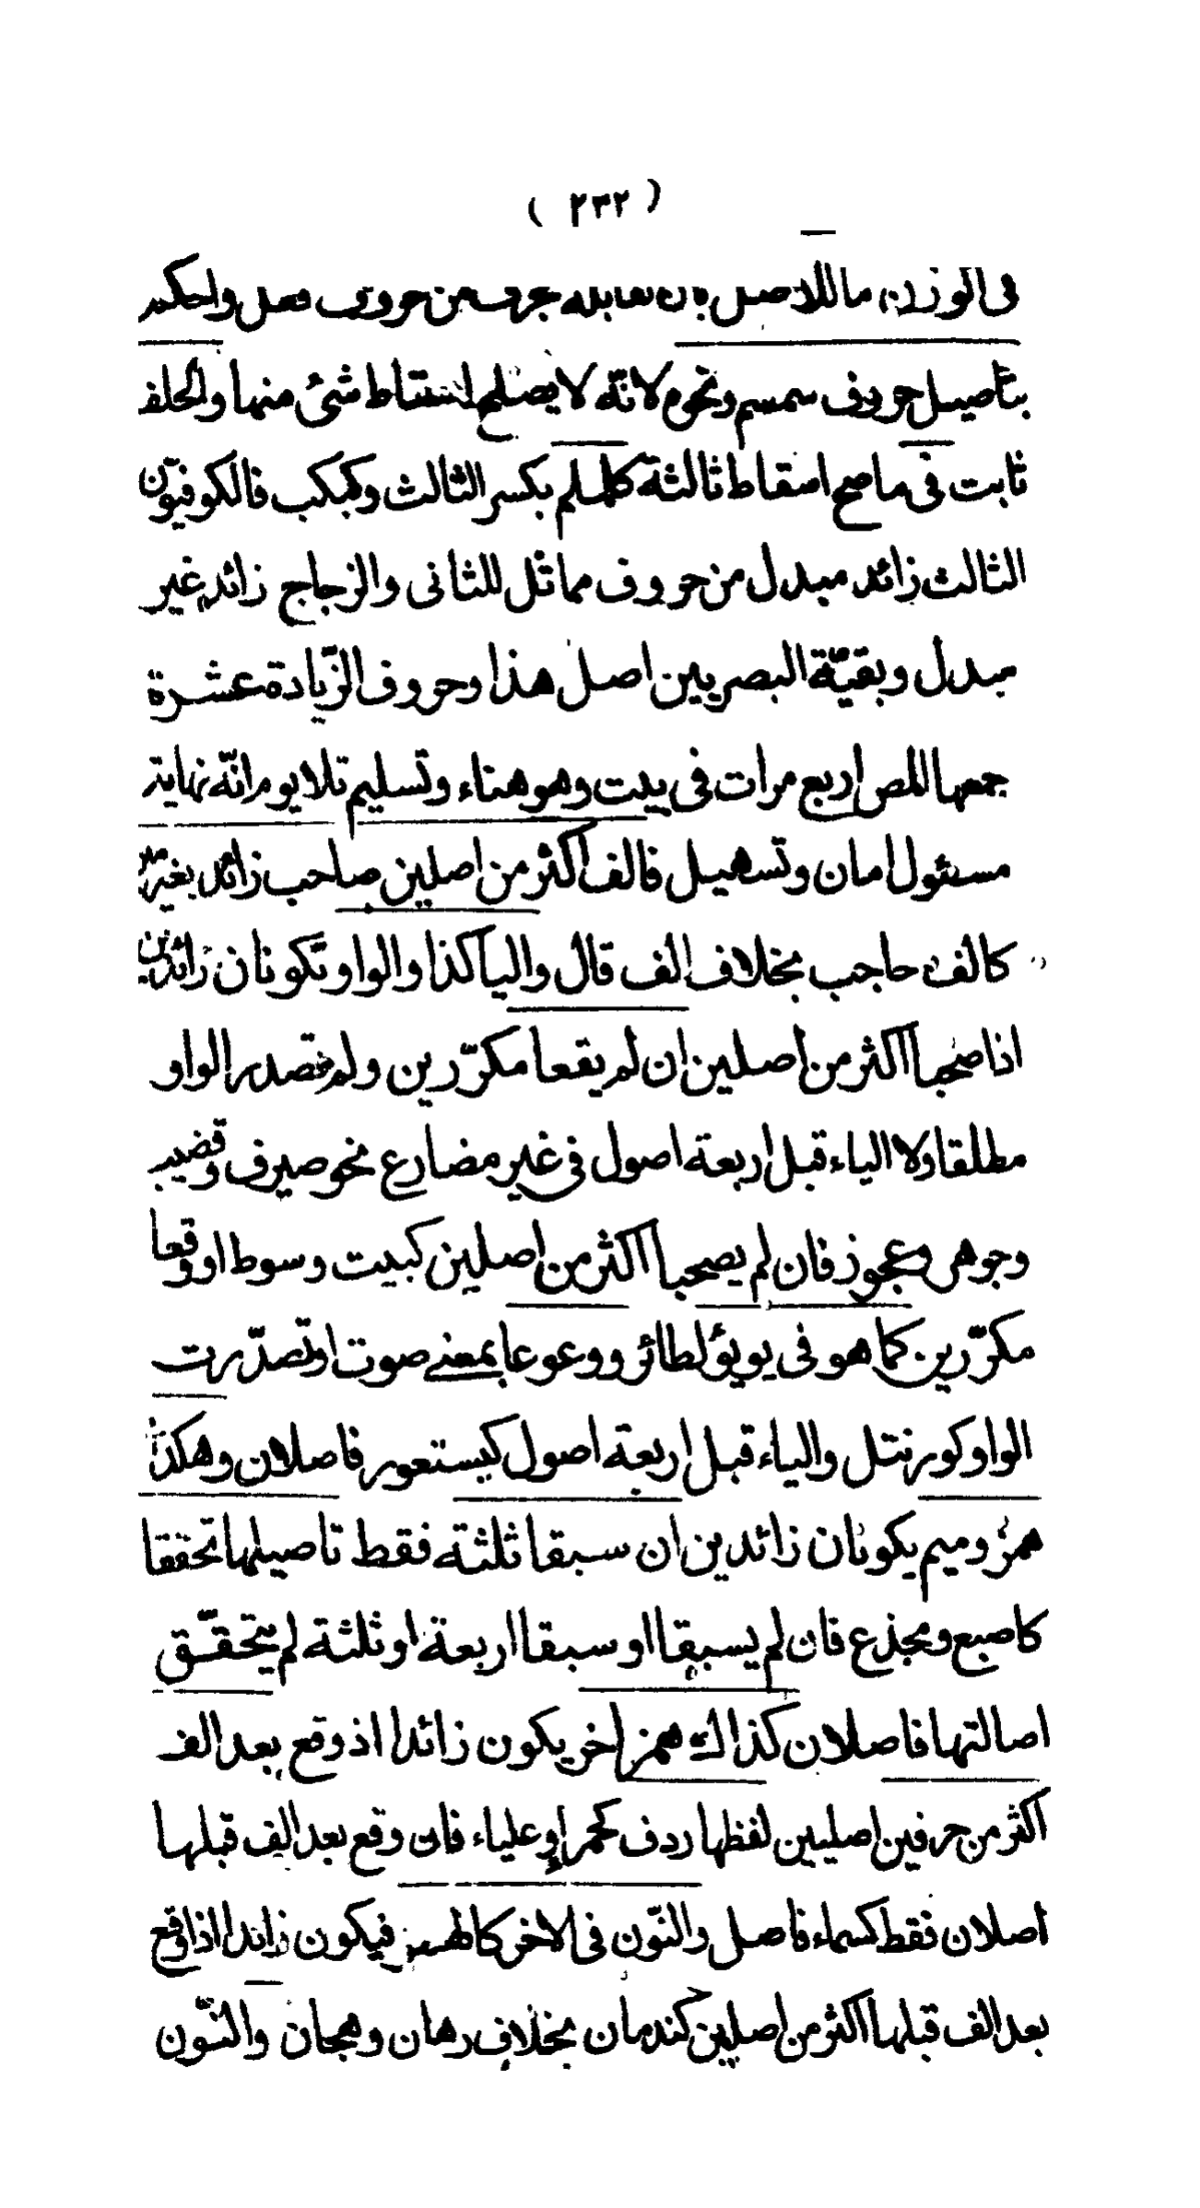 ( ٢٣٢ )
فى الوزن ما للاصل بان تقابله بحرف من حروف فعل واحكم
بتأصيل حروف سمسم ونحوه لانّه لا يصلح اسقاط شئ منها والخلف
ثابت فى ما صح اسقاط ثالثة كلملم بكسر الثالث وكبكب فالكوفيّون
الثالث زائد مبدل من حروف مماثل للثانى والزجاج زائد غير
مبدل وبقيّة البصريين اصل هذا وحروف الزّيادة عشرة
جمعها المص اربع مرات فى بيت وهو هناء وتسليم تلا يوم انّه نهاية
مسئول امان وتسهيل فالف اكثر من اصلين صاحب زائد بغير مين
كالف حاجب بخلاف الف قال واليا كذا والواو تكونان زائدين
اذا صحبا اكثر من اصلين ان لم يقعا مكرّرين ولم تصدر الواو
مطلقا ولا الياء قبل اربعة اصول فى غير مضارع نحو صيرف وقضيب
وجوهر وعجوز فان لم يصحبا اكثر من اصلين كبيت وسوط او وقعا
مكرّرين كما هو فى يويؤ لطائر ووعوعا بمعنے صوت او تصدّرت
الواو كورنتل والياء قبل اربعة اصول كيستعور فاصلان وهكذا
همز وميم يكونان زائدين ان سبقا ثلثة فقط تاصيلها تحققا
كاصبع ومجذع فان لم يسبقا او سبقا اربعة او ثلثة لم يتحقّق
اصالتها فاصلان كذاك همز اخر يكون زائدا اذ وقع بعد الف
اكثر من حرفين اصليين لفظها ردف كحمراو علياء فان وقع بعد الف قبلها
اصلان فقط كسماء فاصل والنّون فى الاخر كالهمز فيكون زائدا اذا وقع
بعد الف قبلها اكثر من اصلين كندمان بخلاف رهان وهجان والنّون